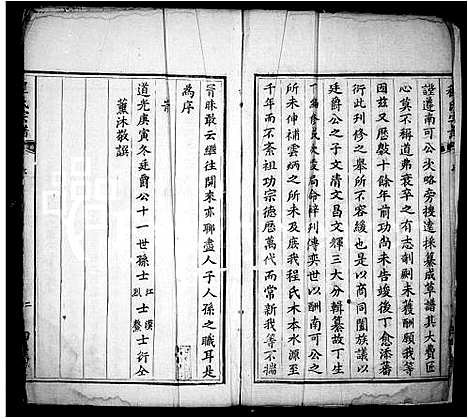 證遵南可公尖略旁搜遠採纂成草譜其大費匠
心莫不稱道弗衰卒之有志剞劂未獲酬願我等
因茲又歷數十餘年前功尚未告竣後丁愈添蕃
衍此刊修之舉所不容緩也是以商同闔族議以
廷爵公之子文清文昌文輝三大分輯纂故丁生
命梓列傳奕世以酬南可公之
所未伸補雲炳之所未及底我程氏木本水源至
千年而不紊祖功宗德歷萬代而常新我等不揣
冒昧敢云繼往開來亦聊盡人子人孫之職耳是
為序
時
道光庚寅冬廷爵公十一世孫士江漢烈鰲士衍仝
薰沐敬譔